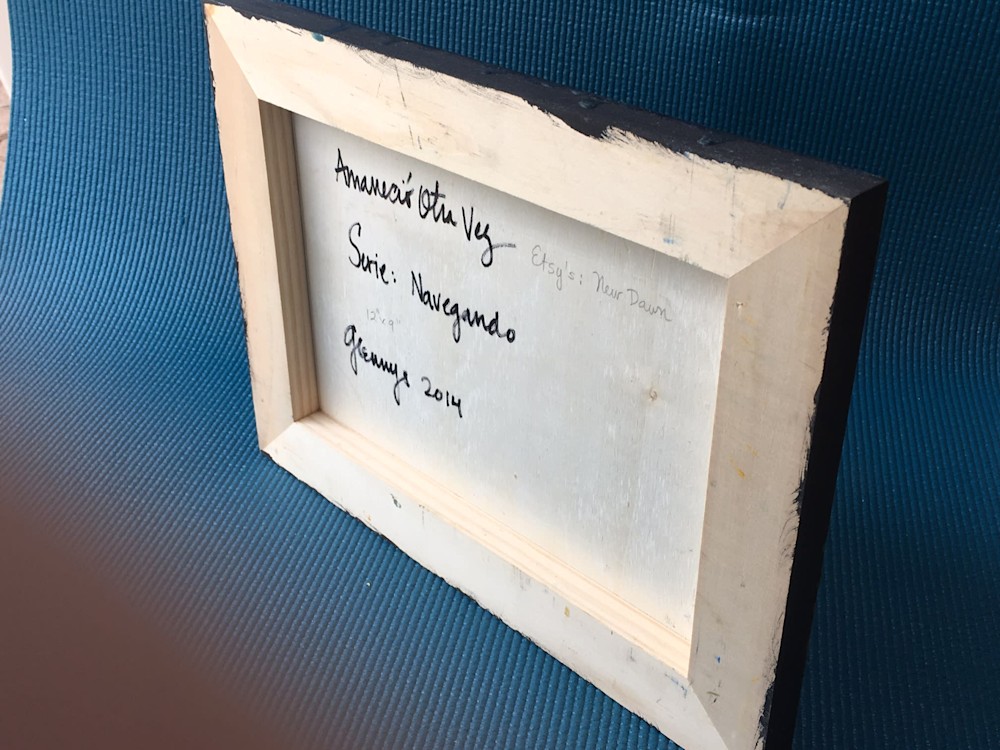 Amaneció Otra Vez
Etsy's: New Dawn
Serie: Navegando
12"x9"
Glennys 2014